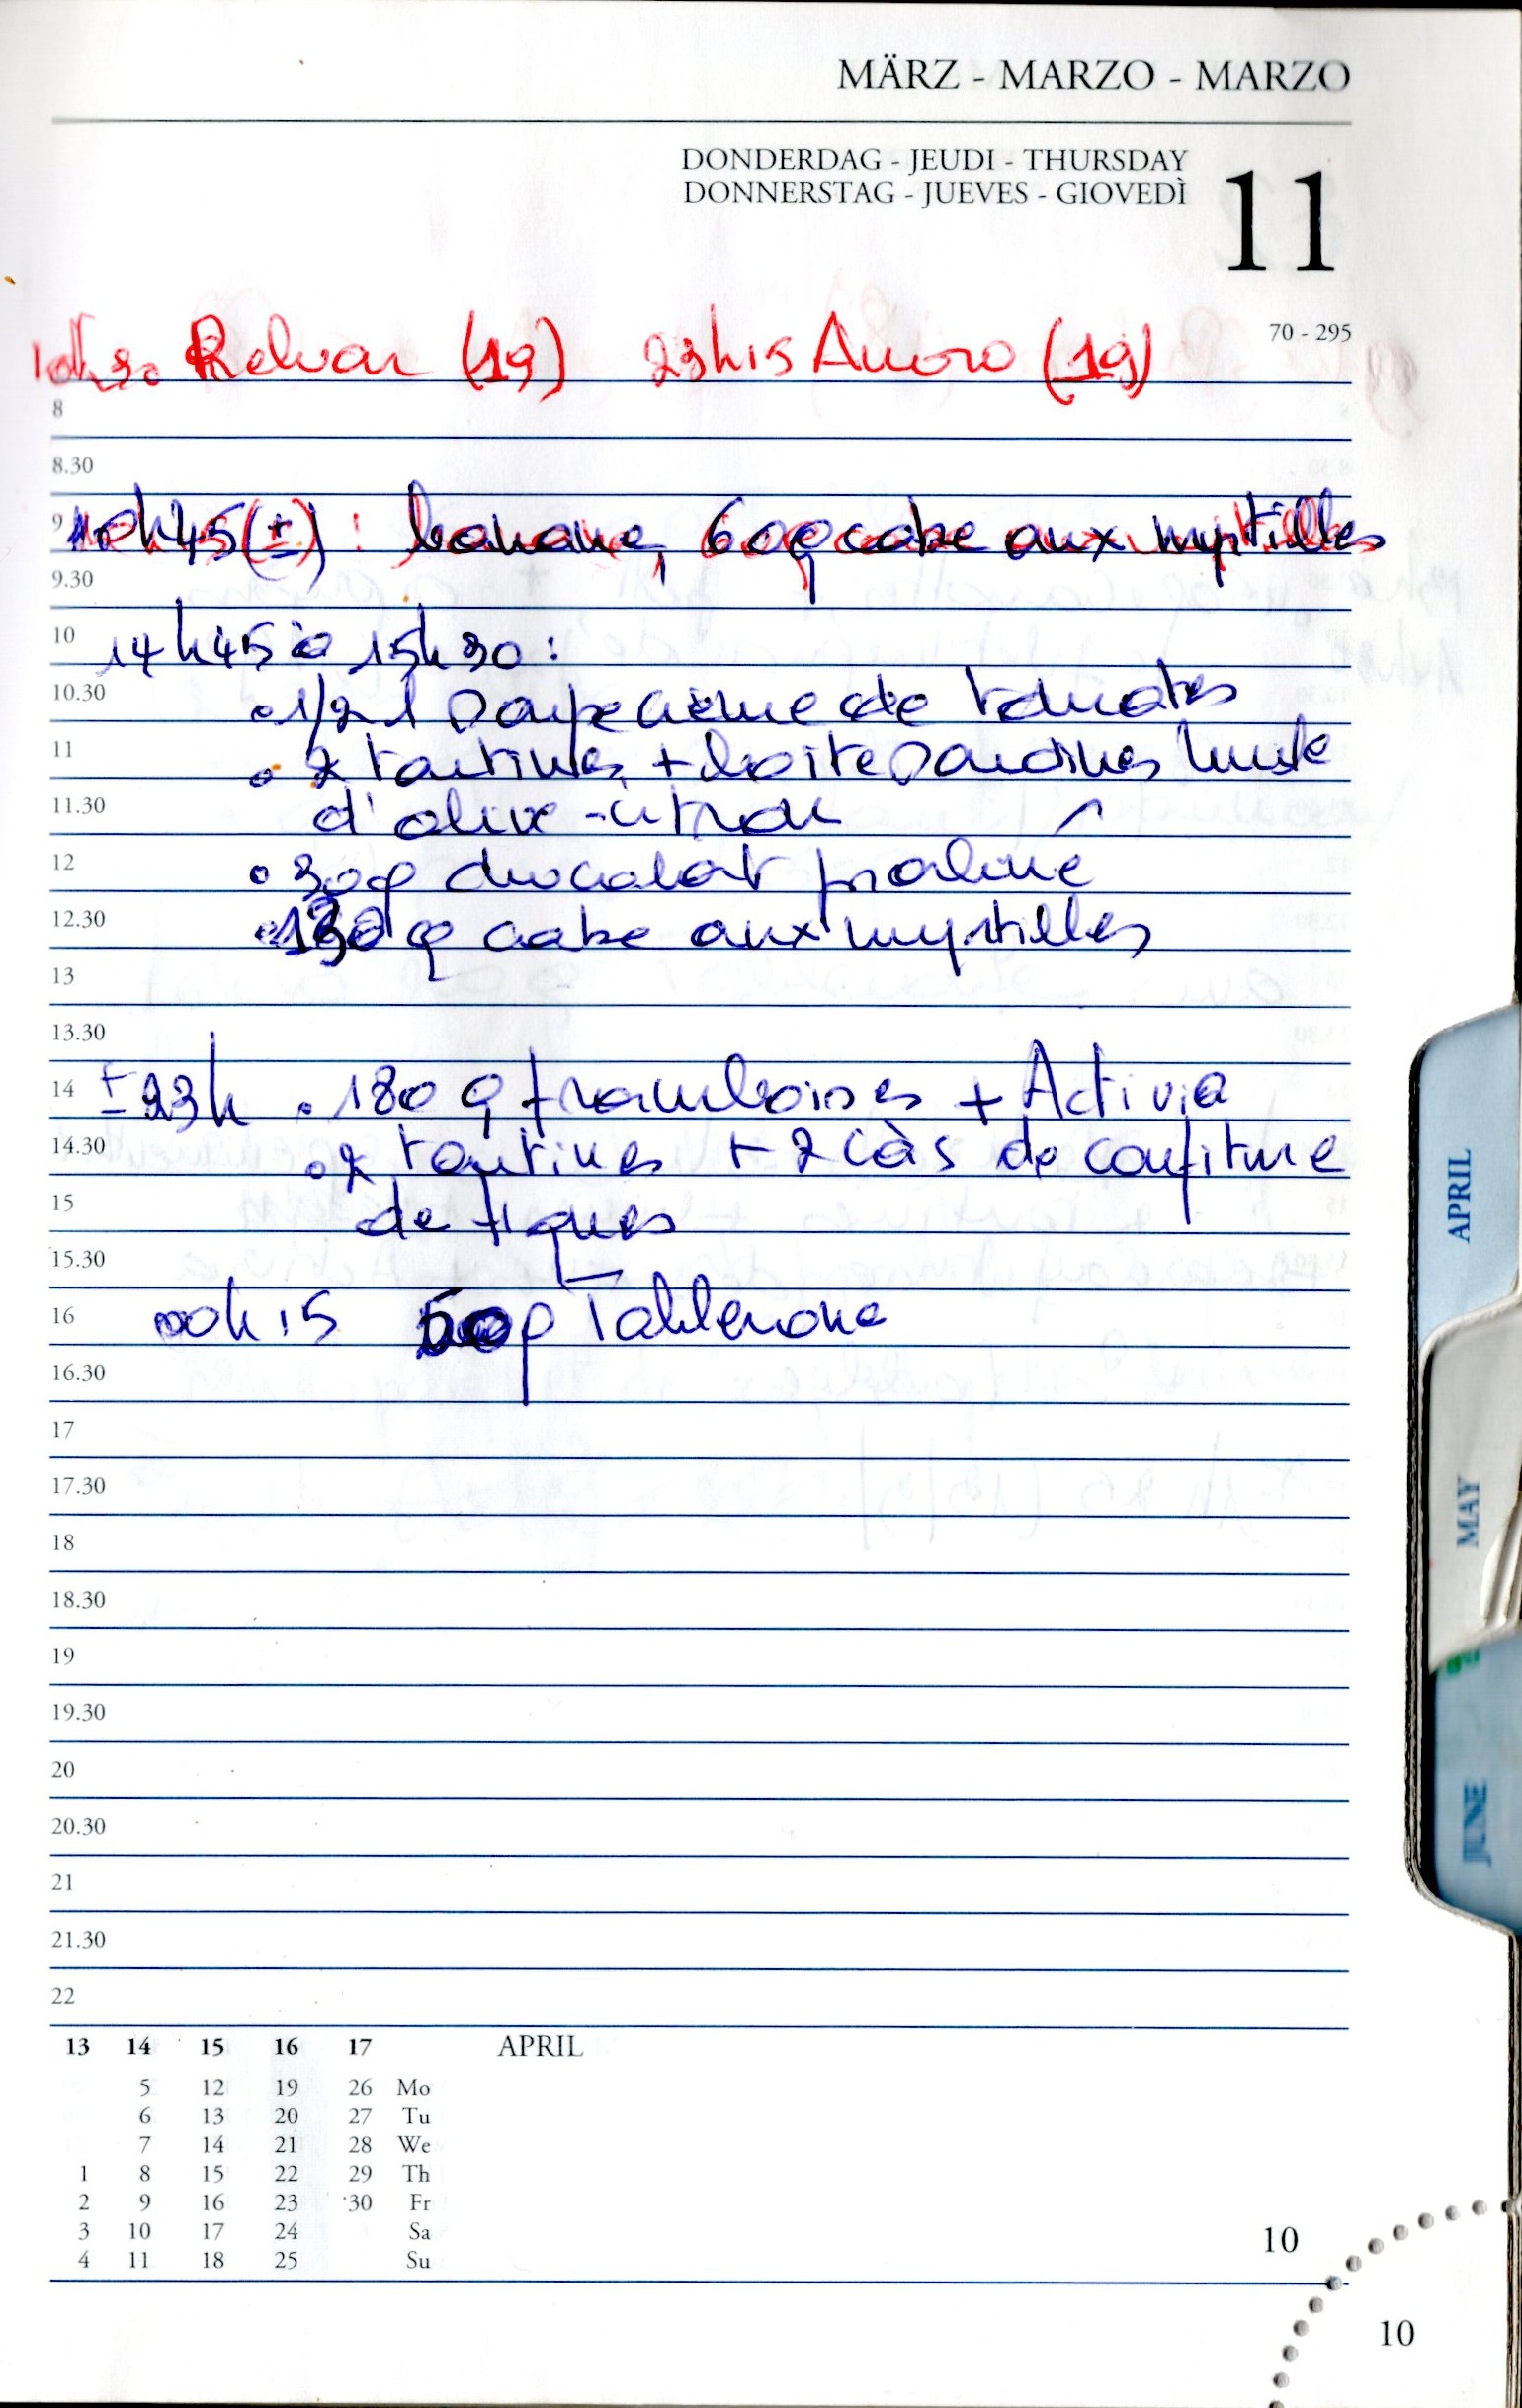 MÄRZ - MARZO - MARZO
DONDERDAG - JEUDI - THURSDAY
DONNERSTAG - JUEVES - GIOVEDÌ
11
70 - 295
10h30 Relvar (19) 23h15 Amoro (19)
8
8.30
9 10h45(±) : banane, 60g cake aux myrtilles
9.30
10 14h45 à 15h30 :
10.30 • 1/2 l soupe crème de tomates
11 • 2 tartines + boite sardines huile
11.30 d'olive-citron
12 • 30g chocolat praliné
12.30 • 130 g cake aux myrtilles
13
13.30
14 ± 23h • 180 g framboises + Activia
14.30 • 2 tartines + 2 càs de confiture
15 de figues
15.30
16 00h15 50g Toblerone
16.30
17
17.30
18
18.30
19
19.30
20
20.30
21
21.30
22
13 14 15 16 17 APRIL
5 12 19 26 Mo
6 13 20 27 Tu
7 14 21 28 We
1 8 15 22 29 Th
2 9 16 23 30 Fr
3 10 17 24 Sa
4 11 18 25 Su
10
10
APRIL
MAY
JUNE